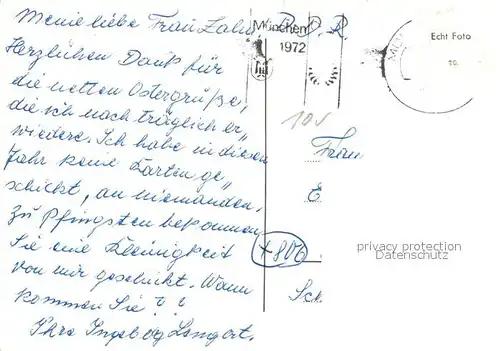 Meine liebe Frau Zahn
D.D.R.
Herzlichen Dank für
die netten Ostergrüße,
die ich nach träglich er„
wiedere. Ich habe in diesen
Jahr keine Karten ge„
schickt, an niemanden,
zu Pfingsten bekommen
Sie eine Kleinigkeit
von mir geschickt. Wann
kommen Sie??
Ihre Ingeborg
München
1972
Echt Foto
10.
10v
Frau
E
+806
Sch
privacy protection
Datenschutz